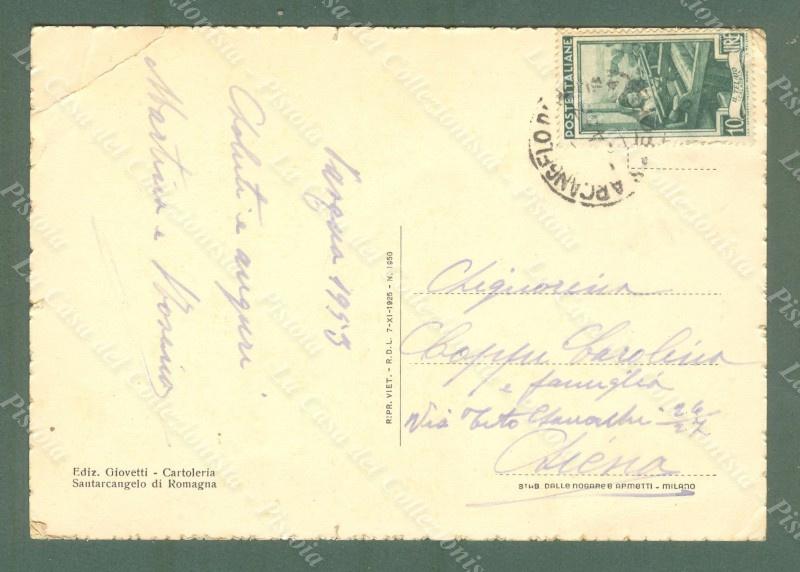 POSTE ITALIANE
LIRE
10
S. ARCANGELO DI
Pasqua 1953
Saluti e auguri
Martino e Rosina
Ediz. Giovetti - Cartoleria
Santarcangelo di Romagna
RIPR. VIET. - R.D.L. 7-XI-1925 - N. 1950
Signorina
Coppi Carolina
e famiglia
Via Tito
26/27
Siena
STAB. DALLE NOGARE E ARMETTI - MILANO
La Casa del Collezionista Pistoia